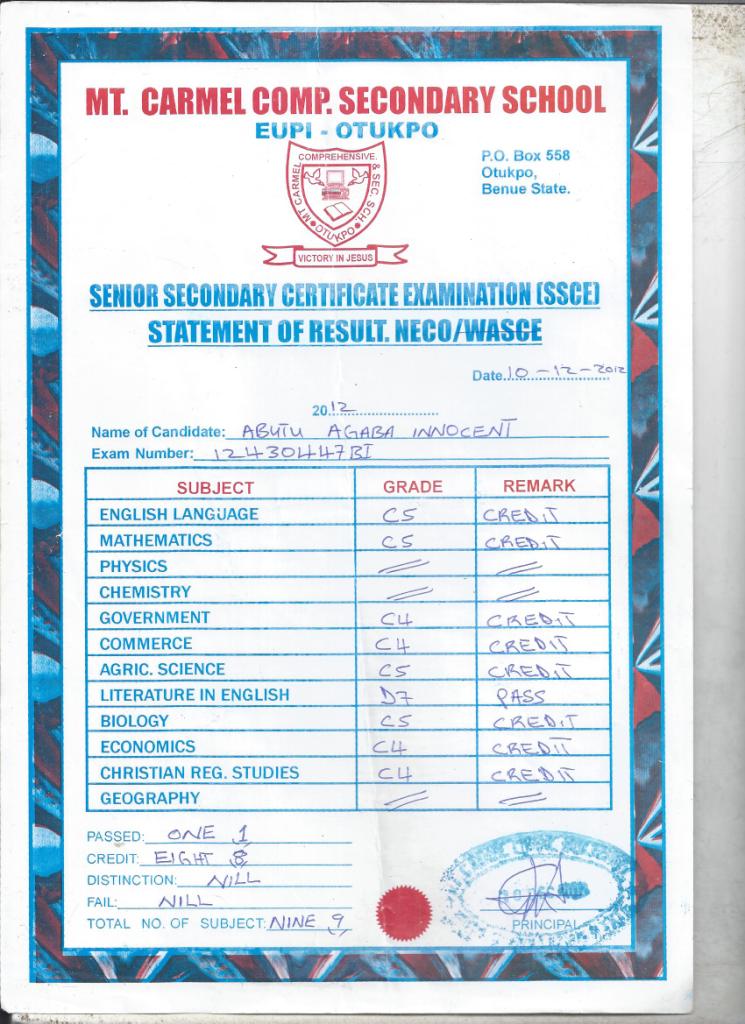 MT. CARMEL COMP. SECONDARY SCHOOL
EUPI - OTUKPO
P.O. Box 558
Otukpo,
Benue State.
COMPREHENSIVE & SEC. SCH.
MT CARMEL
OTUKPO
VICTORY IN JESUS
SENIOR SECONDARY CERTIFICATE EXAMINATION (SSCE)
STATEMENT OF RESULT. NECO/WASCE
Date 10-12-2012
2012
Name of Candidate: ABUTU AGABA INNOCENT
Exam Number: 12430447BI
SUBJECT GRADE REMARK
ENGLISH LANGUAGE C5 CREDIT
MATHEMATICS C5 CREDIT
PHYSICS
CHEMISTRY
GOVERNMENT C4 CREDIT
COMMERCE C4 CREDIT
AGRIC. SCIENCE C5 CREDIT
LITERATURE IN ENGLISH D7 PASS
BIOLOGY C5 CREDIT
ECONOMICS C4 CREDIT
CHRISTIAN REG. STUDIES C4 CREDIT
GEOGRAPHY
PASSED: ONE 1
CREDIT: EIGHT 8
DISTINCTION: NILL
FAIL: NILL
TOTAL NO. OF SUBJECT: NINE 9
PRINCIPAL